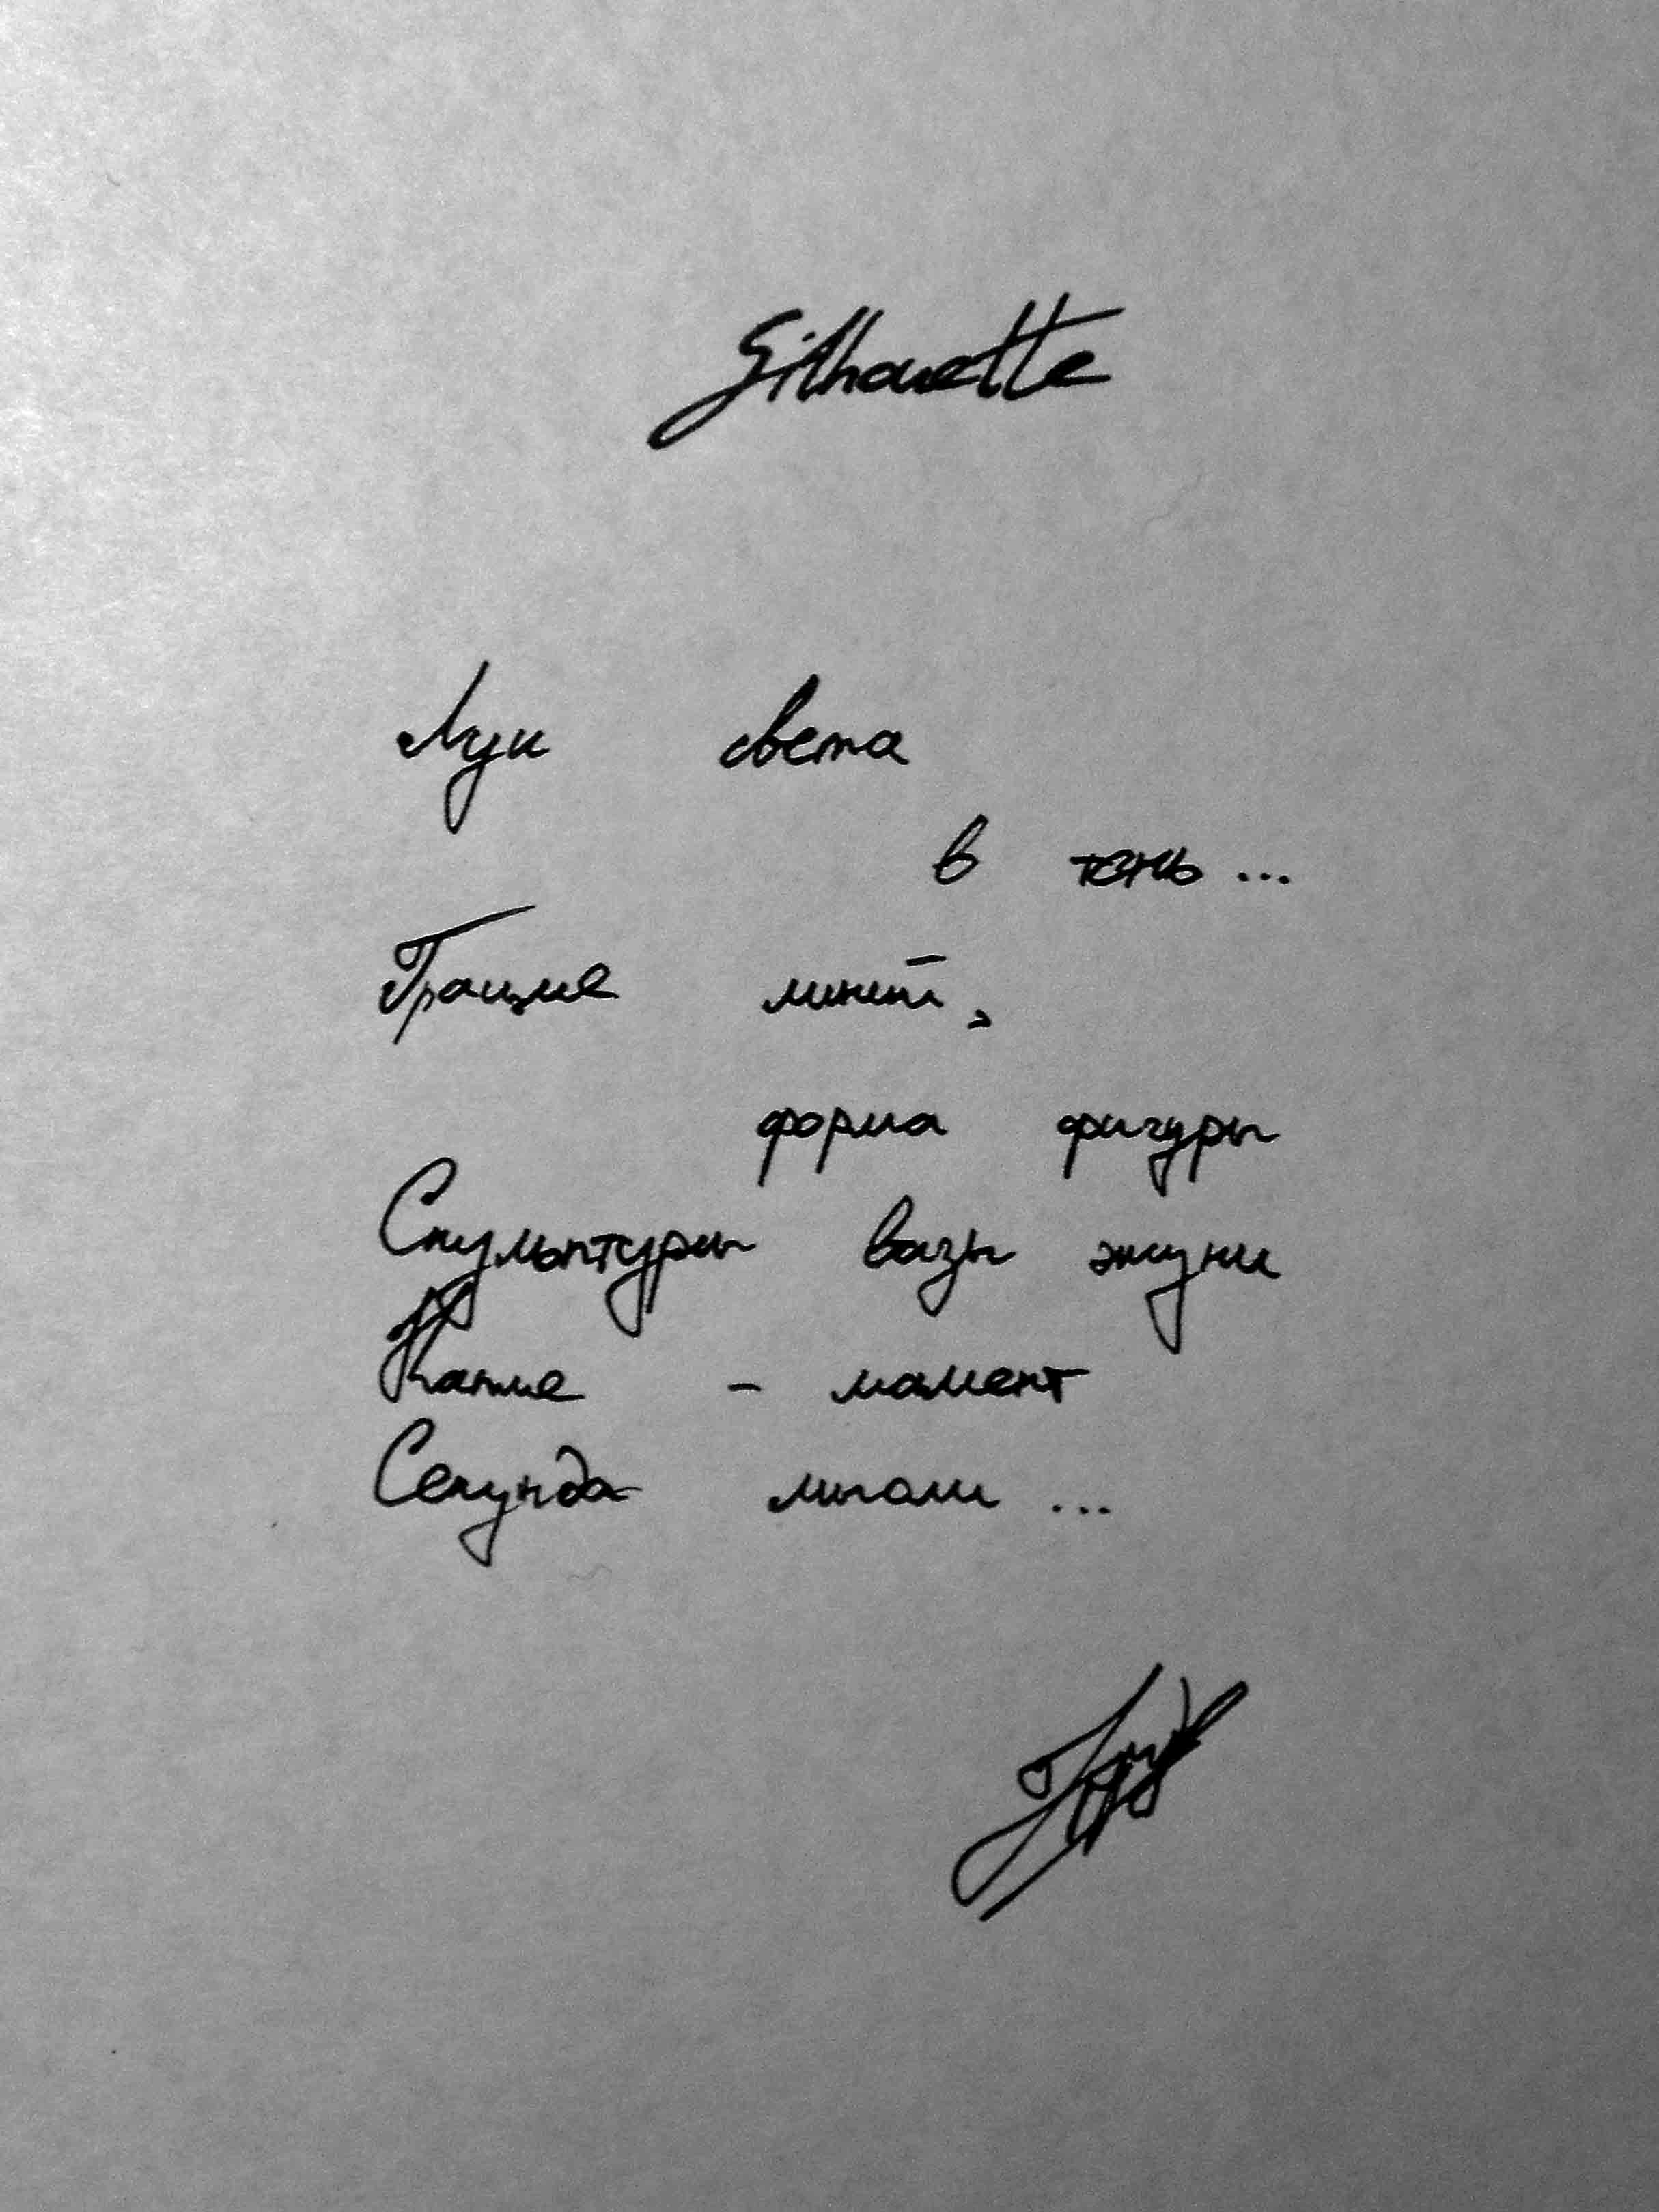 Silhouette
Луч света
в тень...
Грация линий,
форма фигуры
Скульптуры вазы жизни
Капле - момент
Секунда мигали...